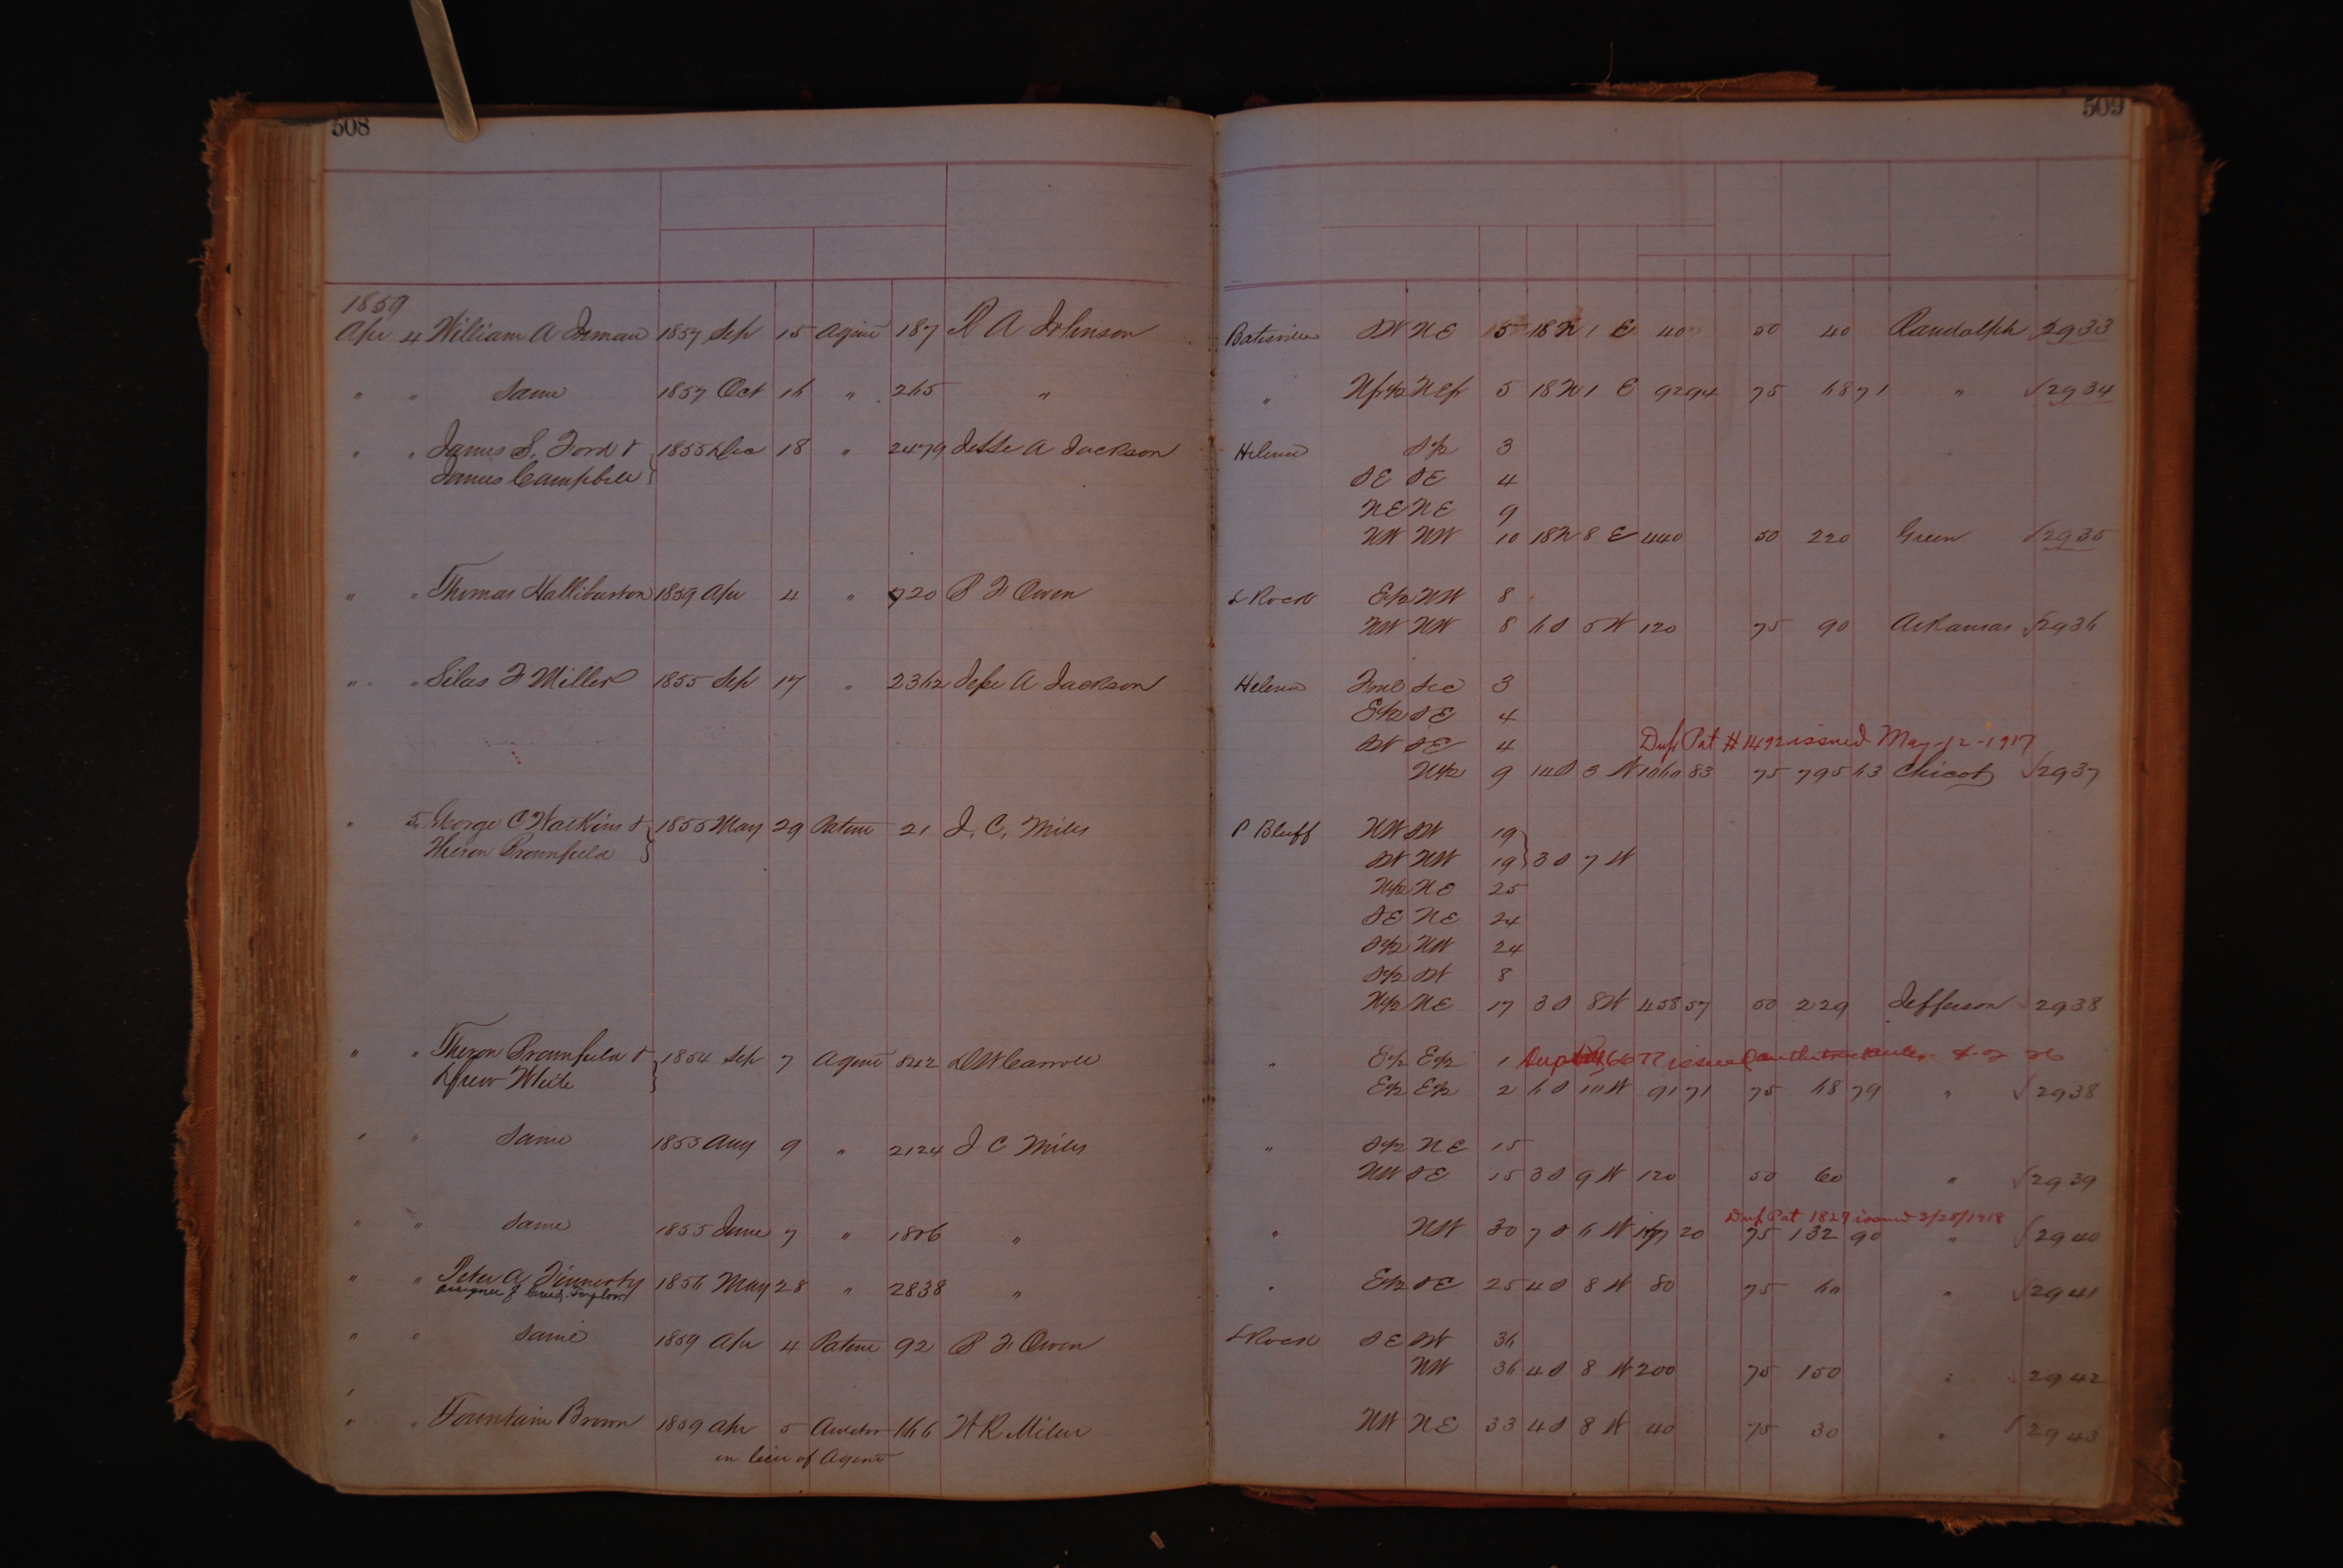 508
1859
Apr 4 William A Inman 1857 Sep 15 Agent 187 R A Johnson
" " Same 1857 Oct 16 " 265 "
" " James S. Ford &
James Campbell } 1855 Dec 18 " 2479 Jesse A Jackson
" " Thomas Halliburton 1859 Apr 4 " 920 P F Owen
" " Silas F Miller 1855 Sep 17 " 2362 Jesse A Jackson
" 5 George C Watkins &
Theron Brownfield } 1855 May 29 Patent 21 J. C. Miles
" " Theron Brownfield &
Drew White } 1854 Sep 7 Agent 842 D W Carroll
" " Same 1855 Aug 9 " 2124 J C Miles
" " Same 1855 June 7 " 1806 "
" " Peter A Finnerty
assignee of Creed Taylor 1856 May 28 " 2838 "
" " Same 1859 Apr 4 Patent 92 P F Owen
" " Fountain Brown 1859 Apr 5 Auditor 166 W R Miller
in lieu of Agent
509
Batesville SW NE 5 18N 1 E 40 50 40 Randolph 2933
" N fr½ NE fr 5 18N 1 E 92 94 75 68 71 " 2934
Helena S½ 3
SE SE 4
NE NE 9
NW NW 10 18N 8 E 440 50 220 Green 2935
L Rock E½ NW 8
NW NW 8 6 S 5 W 120 75 90 Arkansas 2936
Helena Frac Sec 3
E½ SE 4
SW SE 4 Dup Pat # 1492 issued May-12-1917
N½ 9 14 S 3 W 1060 83 75 795 63 Chicot 2937
P Bluff NW SW 19
SW NW 19 } 3 S 7 W
N½ NE 25
SE NE 24
S½ NW 24
S½ SW 8
N½ NE 17 3 S 8 W 458 57 50 229 Jefferson 2938
" E½ E½ 1 issued
E½ E½ 2 6 S 10 W 91 71 75 68 79 " 2938
" S½ NE 15
NW SE 15 3 S 9 W 120 50 60 " 2939
Dup Pat 1829 issued 3/28/1918
" NW 30 7 S 6 W 177 20 75 132 90 " 2940
" E½ SE 25 4 S 8 W 80 75 60 " 2941
L Rock SE SW 36
NW 36 4 S 8 W 200 75 150 " 2942
NW NE 33 4 S 8 W 40 75 30 " 2943